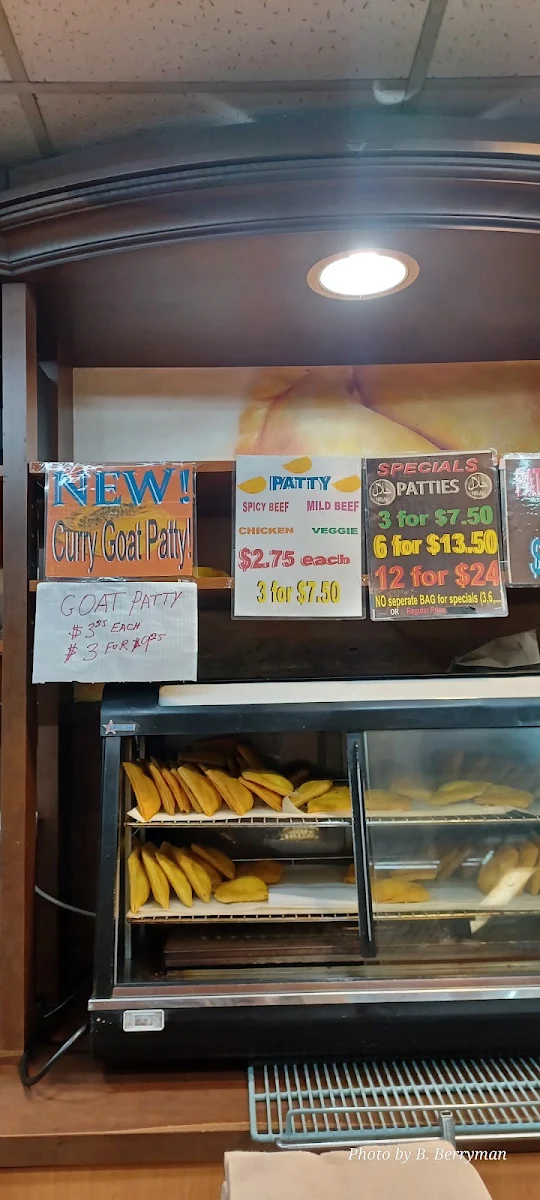 NEW!
Curry Goat Patty!
GOAT PATTY
$3.25 EACH
$ 3 FOR $9.25
PATTY
SPICY BEEF MILD BEEF
CHICKEN VEGGIE
$2.75 each
3 for $7.50
SPECIALS
PATTIES
3 for $7.50
6 for $13.50
12 for $24
NO seperate BAG for specials (3,6,
OR Regular Price
Photo by B. Berryman